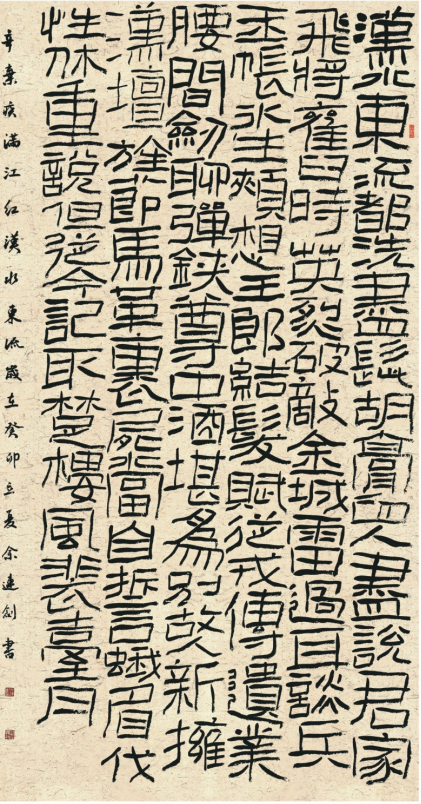 漢水東流都洗盡髭胡膏血人盡說君家
飛將舊時英烈破敵金城雷過耳談兵
玉帳冰生頰想王郎結髮賦從戎傳遺業
腰間劔聊彈鋏尊中酒堪爲別故新擁
漢壇旌節馬革裹屍當自誓言蛾眉伐
性休重說但從今記取楚樓風裴臺月
辛棄疾滿江紅漢水東流歲在癸卯立夏余劍書